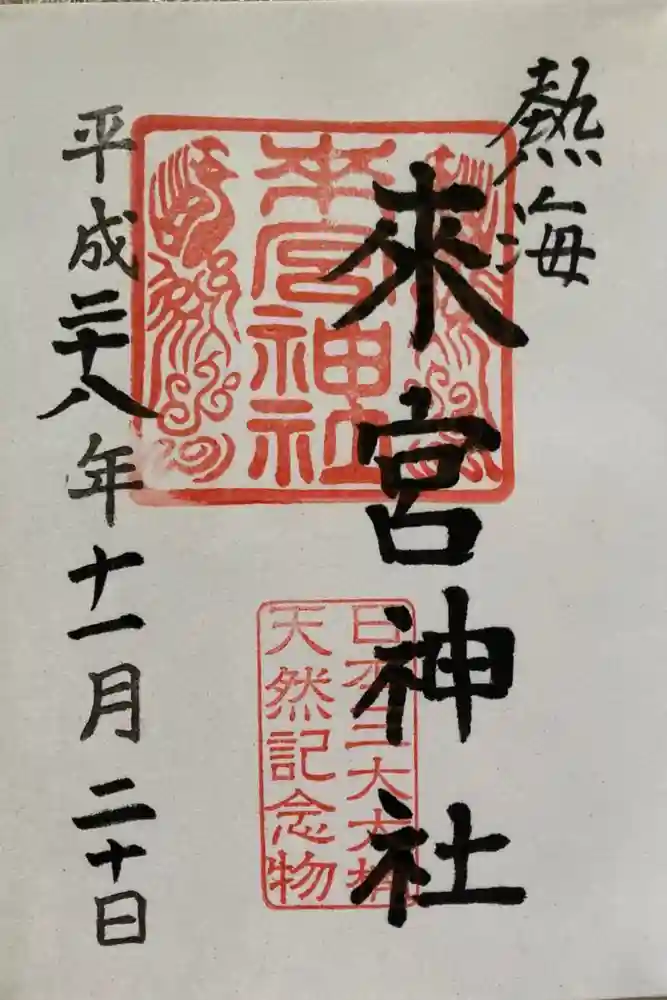 熱海
來宮神社
来宮神社
日本三大大楠
天然記念物
平成二十八年十一月二十日